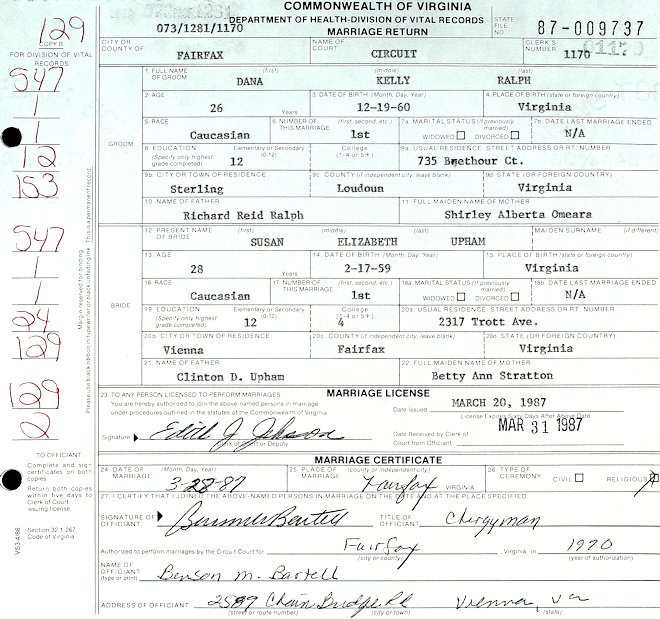 COMMONWEALTH OF VIRGINIA
DEPARTMENT OF HEALTH-DIVISION OF VITAL RECORDS
MARRIAGE RETURN
073/1281/1170
STATE FILE NO. 87-009737
129
COPY B
FOR DIVISION OF VITAL RECORDS
CITY OR COUNTY OF FAIRFAX NAME OF COURT CIRCUIT CLERK'S NUMBER 1170 01170
547
1
1
12
153
GROOM
1 FULL NAME OF GROOM (first) DANA (middle) KELLY (last) RALPH
2. AGE 26 Years 3. DATE OF BIRTH (Month, Day, Year) 12-19-60 4. PLACE OF BIRTH (state or foreign country) Virginia
5. RACE Caucasian 6. NUMBER OF THIS MARRIAGE (first, second, etc.) 1st 7a. MARITAL STATUS (If previously married) WIDOWED DIVORCED 7b. DATE LAST MARRIAGE ENDED N/A
8. EDUCATION (Specify only highest grade completed) Elementary or Secondary (0-12) 12 College (1-4 or 5+) 9a. USUAL RESIDENCE STREET ADDRESS OR RT. NUMBER 735 Brethour Ct.
9b. CITY OR TOWN OF RESIDENCE Sterling 9c. COUNTY (If independent city, leave blank) Loudoun 9d. STATE (OR FOREIGN COUNTRY) Virginia
10. NAME OF FATHER Richard Reid Ralph 11. FULL MAIDEN NAME OF MOTHER Shirley Alberta Omeara
547
1
1
24
129
BRIDE
12. PRESENT NAME OF BRIDE (first) SUSAN (middle) ELIZABETH (last) UPHAM MAIDEN SURNAME (if different)
13. AGE 28 Years 14. DATE OF BIRTH (Month, Day, Year) 2-17-59 15. PLACE OF BIRTH (state or foreign country) Virginia
16. RACE Caucasian 17. NUMBER OF THIS MARRIAGE (first, second, etc.) 1st 18a. MARITAL STATUS (If previously married) WIDOWED DIVORCED 18b. DATE LAST MARRIAGE ENDED N/A
19. EDUCATION (Specify only highest grade completed) Elementary or Secondary (0-12) 12 College (1-4 or 5+) 4 20a. USUAL RESIDENCE STREET ADDRESS OR RT. NUMBER 2317 Trott Ave.
20b. CITY OR TOWN OF RESIDENCE Vienna 20c. COUNTY (If independent city, leave blank) Fairfax 20d. STATE (OR FOREIGN COUNTRY) Virginia
21. NAME OF FATHER Clinton D. Upham 22. FULL MAIDEN NAME OF MOTHER Betty Ann Stratton
Margin reserved for binding.
Please use black ribbon in typewriter or black unfading ink. This is a permanent record.
129
2
23. TO ANY PERSON LICENSED TO PERFORM MARRIAGES: MARRIAGE LICENSE
You are hereby authorized to join the above-named persons in marriage
under procedures outlined in the statutes of the Commonwealth of Virginia
Date Issued MARCH 20, 1987
License Expires Sixty Days After Above Date
Signature Edith J. Johnson
Clerk of Court or Deputy
Date Received by Clerk of Court from Officiant MAR 31 1987
TO OFFICIANT:
Complete and sign certificates on both copies
Return both copies within five days to Clerk of Court issuing license.
Section 32.1-267, Code of Virginia
VS3-4/86
MARRIAGE CERTIFICATE
24. DATE OF MARRIAGE (Month, Day, Year) 3-28-87 25. PLACE OF MARRIAGE (county or independent city) Fairfax VIRGINIA 26. TYPE OF CEREMONY CIVIL RELIGIOUS X
27. I CERTIFY THAT I JOINED THE ABOVE-NAMED PERSONS IN MARRIAGE ON THE DATE AND AT THE PLACE SPECIFIED.
SIGNATURE OF OFFICIANT Benson M Bartell TITLE OF OFFICIANT Clergyman
Authorized to perform marriages by the Circuit Court for Fairfax (city or county), Virginia, in 1970 (year of authorization)
NAME OF OFFICIANT (type or print) Benson M. Bartell
ADDRESS OF OFFICIANT 2589 Chain Bridge Rd Vienna, Va
(street or route number) (city or town) (state)